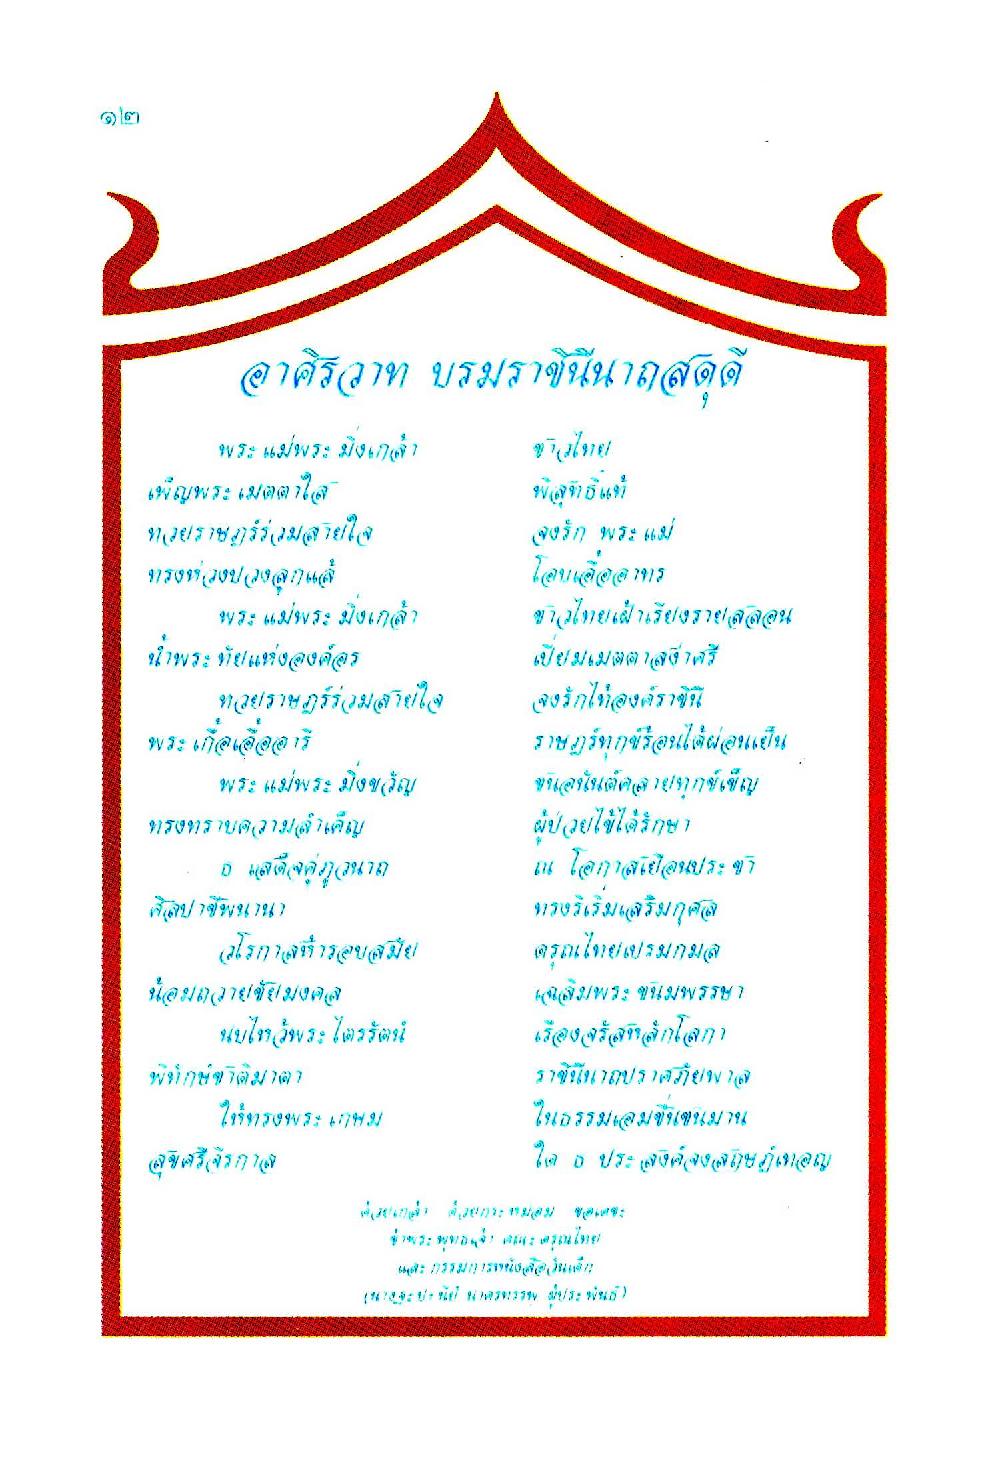 ๑๒
อาศิรวาท บรมราชินีนาถสดุดี
พระแม่พระมิ่งเกล้า ชาวไทย
เพ็ญพระเมตตาใส พิสุทธิ์แท้
ทวยราษฎร์ร่วมสายใจ จงรัก พระแม่
ทรงห่วงปวงลูกแล้ โอบเอื้ออาทร
พระแม่พระมิ่งเกล้า ชาวไทยเฝ้าเรียงรายสลอน
น้ำพระทัยแห่งองค์อร เปี่ยมเมตตาสง่าศรี
ทวยราษฎร์ร่วมสายใจ จงรักไท้องค์ราชินี
พระเกื้อเอื้ออารี ราษฎร์ทุกข์ร้อนได้ผ่อนเย็น
พระแม่พระมิ่งขวัญ ชนอนันต์คลายทุกข์เข็ญ
ทรงทราบความลำเค็ญ ผู้ป่วยไข้ได้รักษา
ธ เสด็จคู่ภูวนาถ ณ โอกาสเยือนประชา
ศิลปาชีพนานา ทรงริเริ่มเสริมกุศล
วโรกาสห้ารอบสมัย ดรุณไทยเปรมกมล
น้อมถวายชัยมงคล เฉลิมพระชนมพรรษา
นบไหว้พระไตรรัตน์ เรืองจรัสหลักโลกา
พิทักษ์ชาติมาตา ราชินีนาถปราศภัยพาล
ให้ทรงพระเกษม ในธรรมเอมชื่นชนมาน
สุขศรีจิรกาล ใด ธ ประสงค์จงสฤษฎ์เทอญ
ด้วยเกล้า ด้วยกระหม่อม ขอเดชะ
ข้าพระพุทธเจ้า คณะดรุณไทย
และ กรรมการหนังสือวันเด็ก
นาครทรรพ ผู้ประพันธ์)